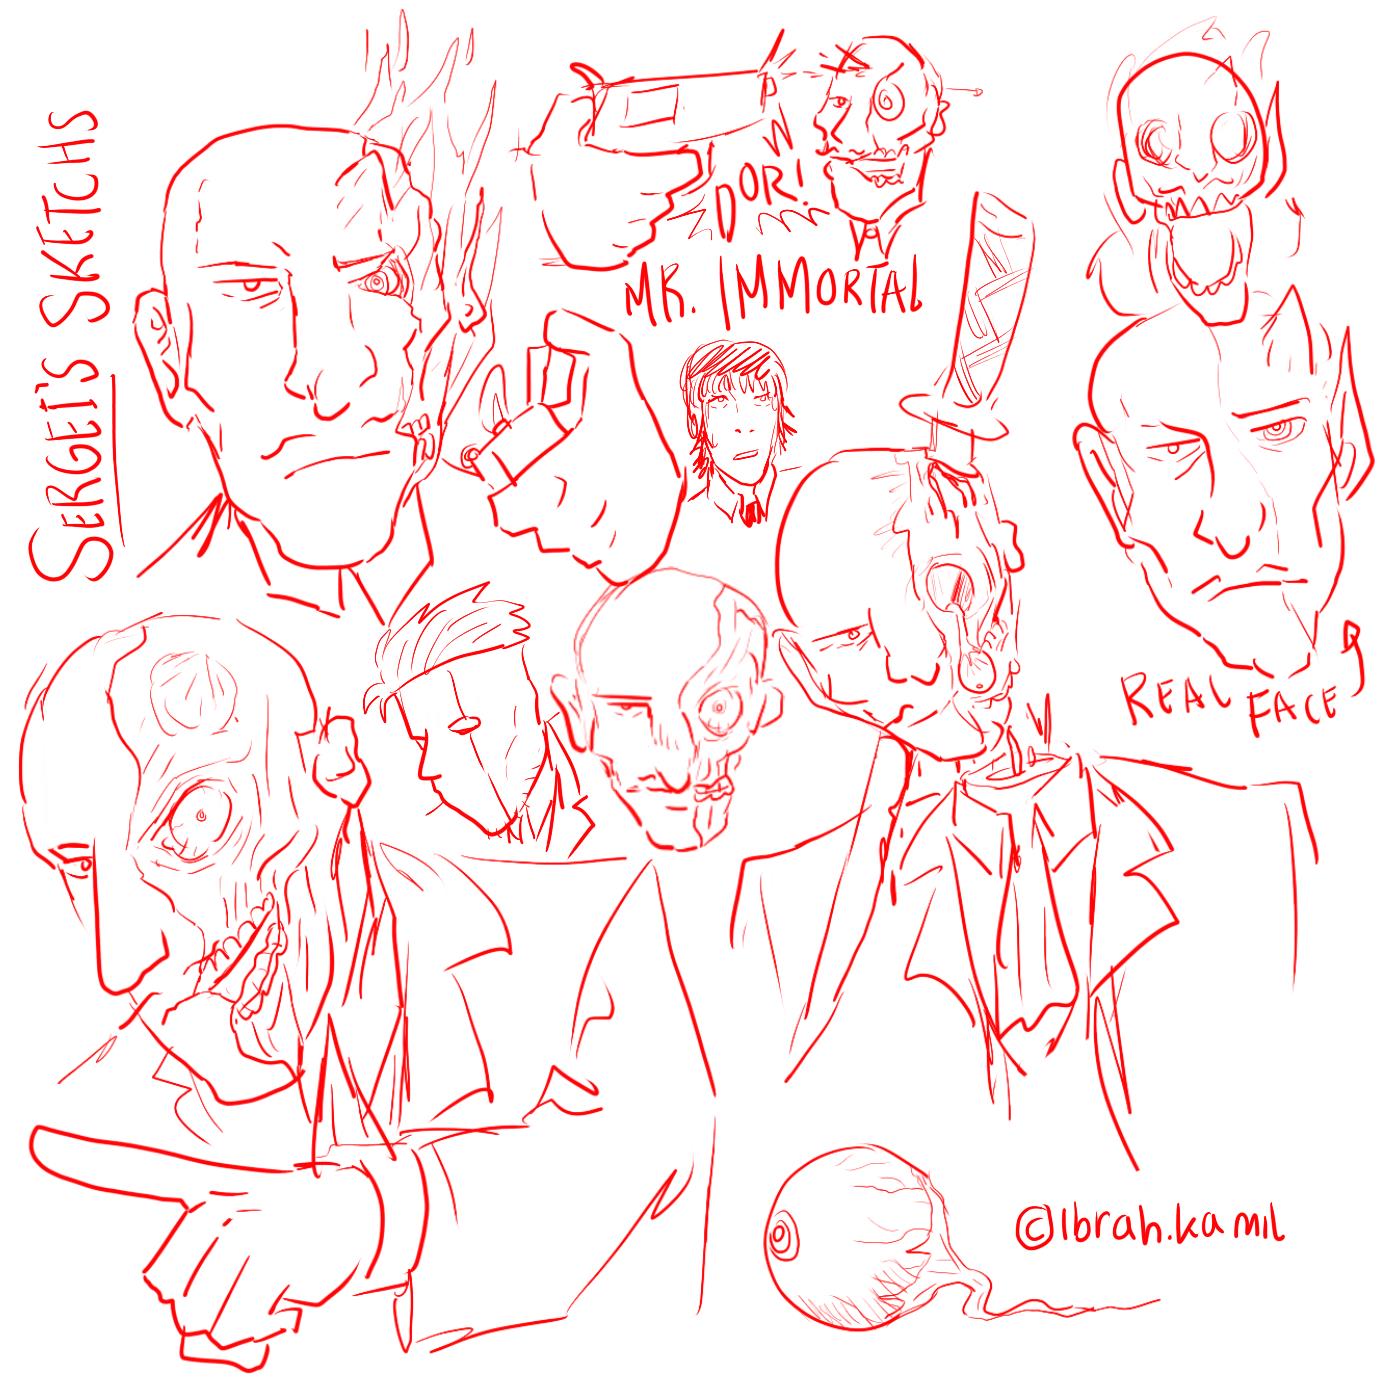 SERGEI'S SKETCHS
PW
DOR!
MR. IMMORTAL
REAL FACE
©Ibrah.kamil